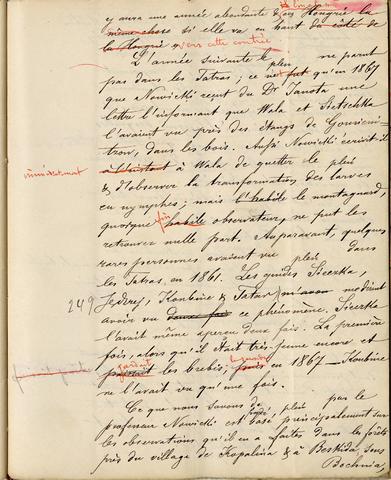 y aura une année abondante
même chose si elle va en haut du côté de
la Hongrie vers cette contrée
L'année suivante le pleń ne parut
pas dans les Tatras; ce ne fut qu'en 1867
que Nowicki reçut du Dr Janota une
lettre l'informant que Wala et
l'avaient vu près des étangs de
dans les bois. Aussi Nowicki écrivit-il
immédiatement
à l'instant à Wala de guetter le pleń
& d'observer la transformation des larves
en nymphes; mais l'habile montagnard,
quoique fin habile observateur, ne put les
retrouver nulle part. Auparavant, quelques
rares personnes avaient vu pleń dans
les Tatras, en 1861. Les guides Sieczka,
249
Jędrzej, Koubine & Tatar m'ont
avoir vu deux fois ce phénomène. Sieczka
l'avait même aperçu deux fois. La première
fois, alors qu'il était très jeune encore et
gardait
les brebis; puis en 1867 — Koubine
ne l'avait vu qu'une fois.
Ce que nous savons du pleń par le
professeur Nowicki est basé principalement sur
les observations qu'il en a faites dans les forêts
près du village de Kopalina & à Beskida, sous
Bochnia,